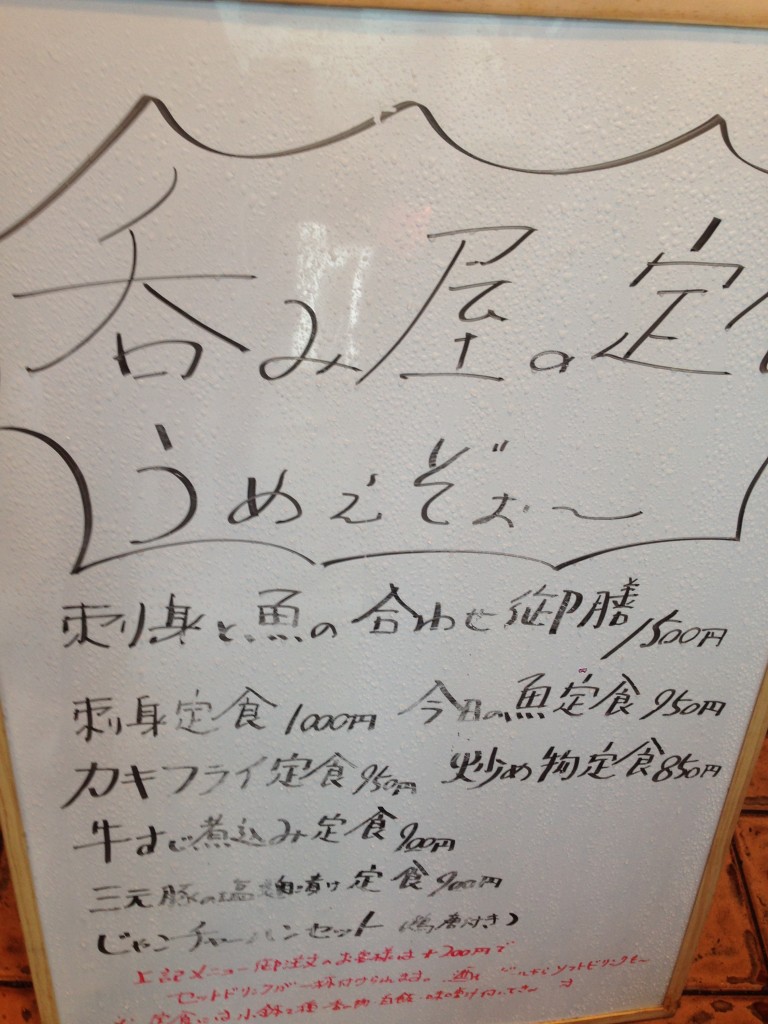 呑み屋の定
うめぇぞぉ〜
刺身と魚の合わせ御膳 1500円
刺身定食 1000円 今日の魚定食 950円
カキフライ定食 950円 炒め物定食 850円
牛すじ煮込み定食 900円
三元豚の塩麹漬け定食 900円
じゃこチャーハンセット
上記メニュー御注文のお客様は+200円で
セットドリンクが一杯付けられます。
定食には小鉢2種